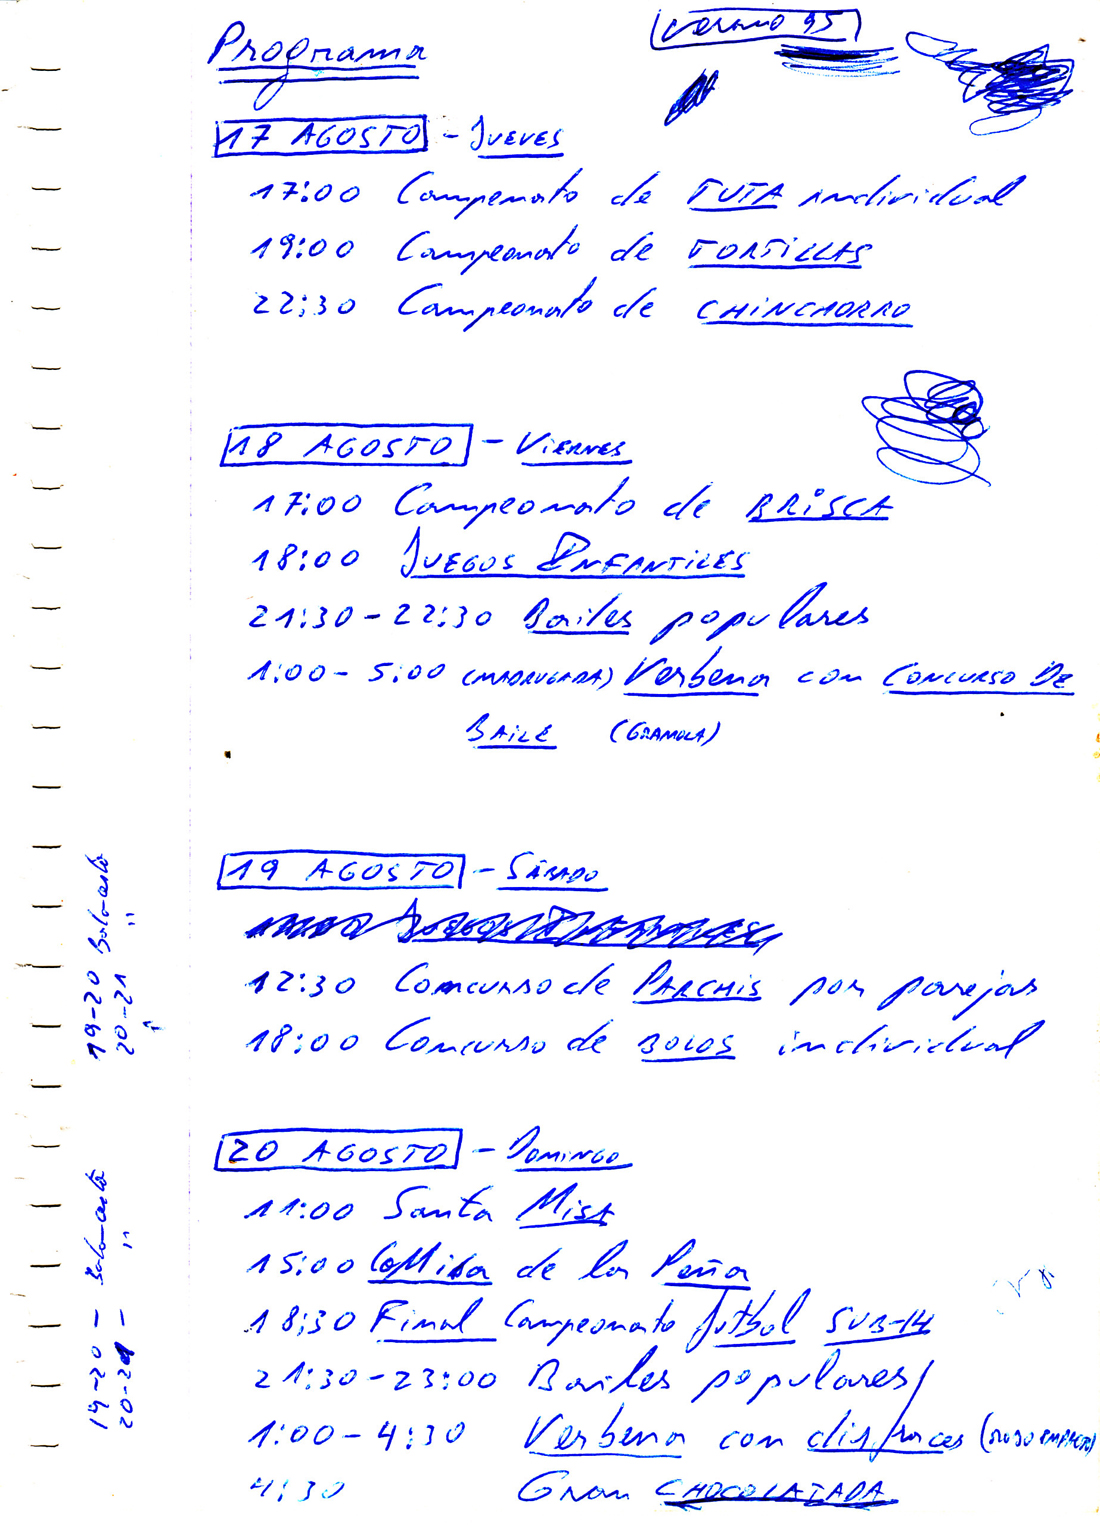 Programa
Verano 95
17 AGOSTO - JUEVES
17:00 Campenato de TUTA individual
19:00 Campeonato de TORTILLAS
22:30 Campeonato de CHINCHORRO
18 AGOSTO - VIERNES
17:00 Campeonato de BRISCA
18:00 JUEGOS INFANTILES
21:30-22:30 Bailes populares
1:00-5:00 (MADRUGADA) Verbena con CONCURSO DE
BAILE (GRAMOLA)
19 AGOSTO - SÁBADO
12:30 Concurso de PARCHIS por parejas
18:00 Concurso de BOLOS individual
20 AGOSTO - DOMINGO
11:00 Santa MISA
15:00 Comida de la Peña
18:30 Final Campeonato futbol SUB-14
21:30-23:00 Bailes populares
1:00-4:30 Verbena con disfraces
4:30 Gran CHOCOLATADA
19-20 Baloncesto
20-21 "
19-20 - Baloncesto
20-21 - "